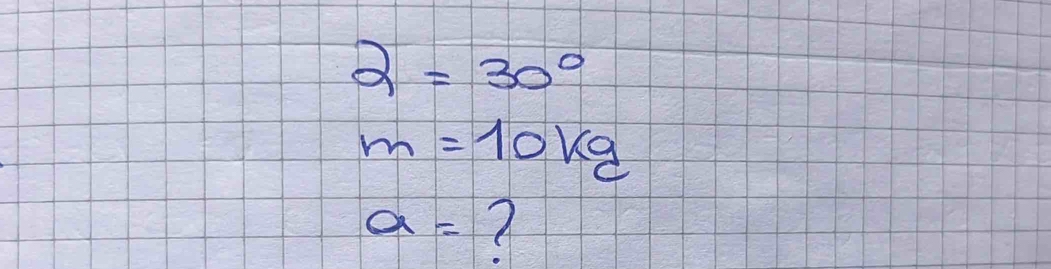 α = 30°
m = 10 kg
a = ?